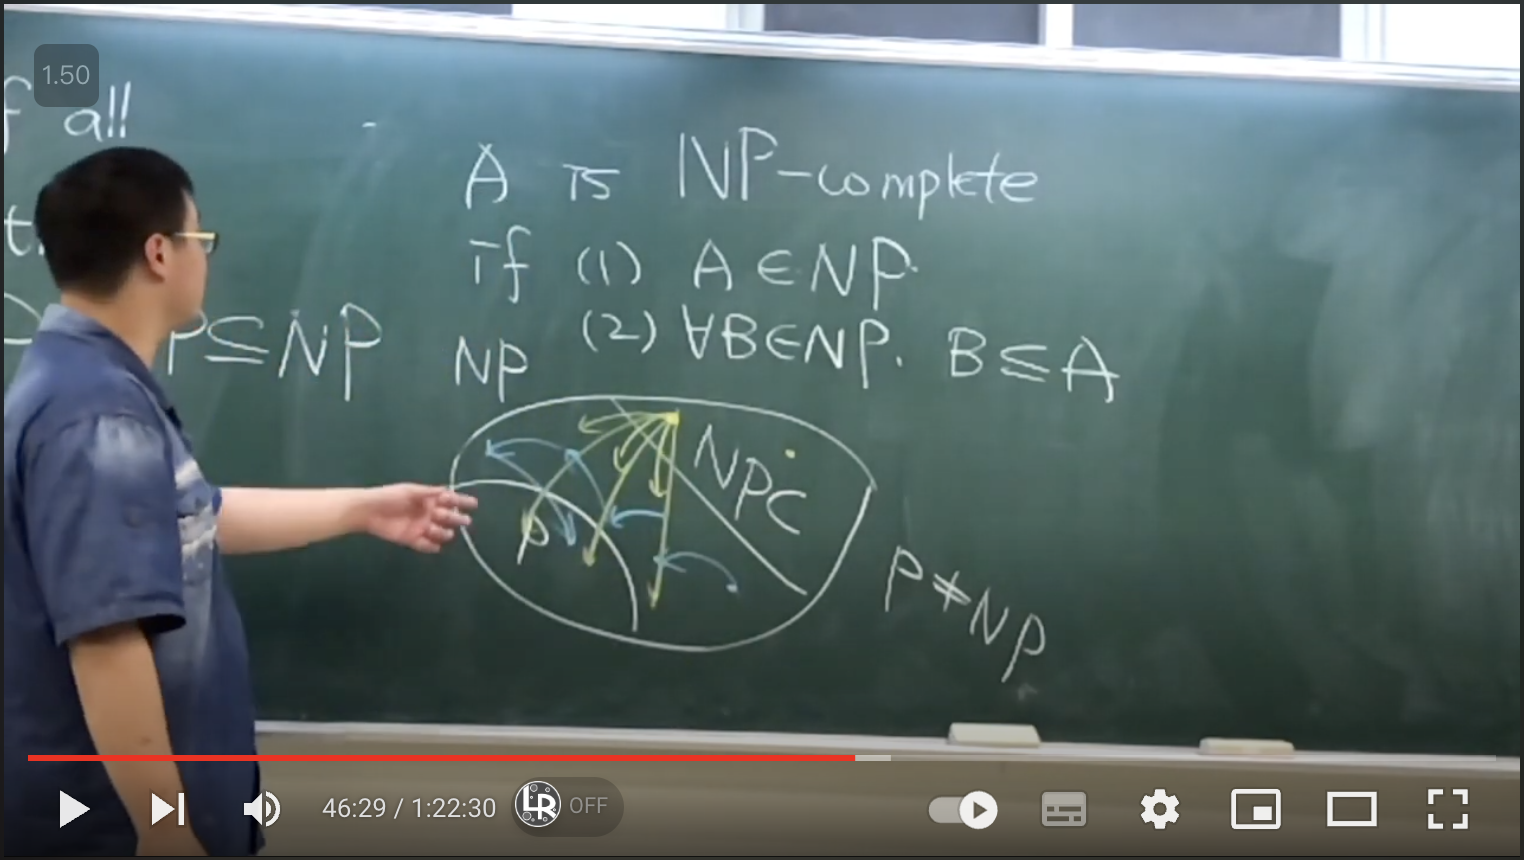 1.50
all
A is NP-complete
if (1) A ∈ NP.
(2) ∀B∈NP. B ≤ A
P ⊆ NP
NP
NPC
P
P ≠ NP
46:29 / 1:22:30
LR OFF